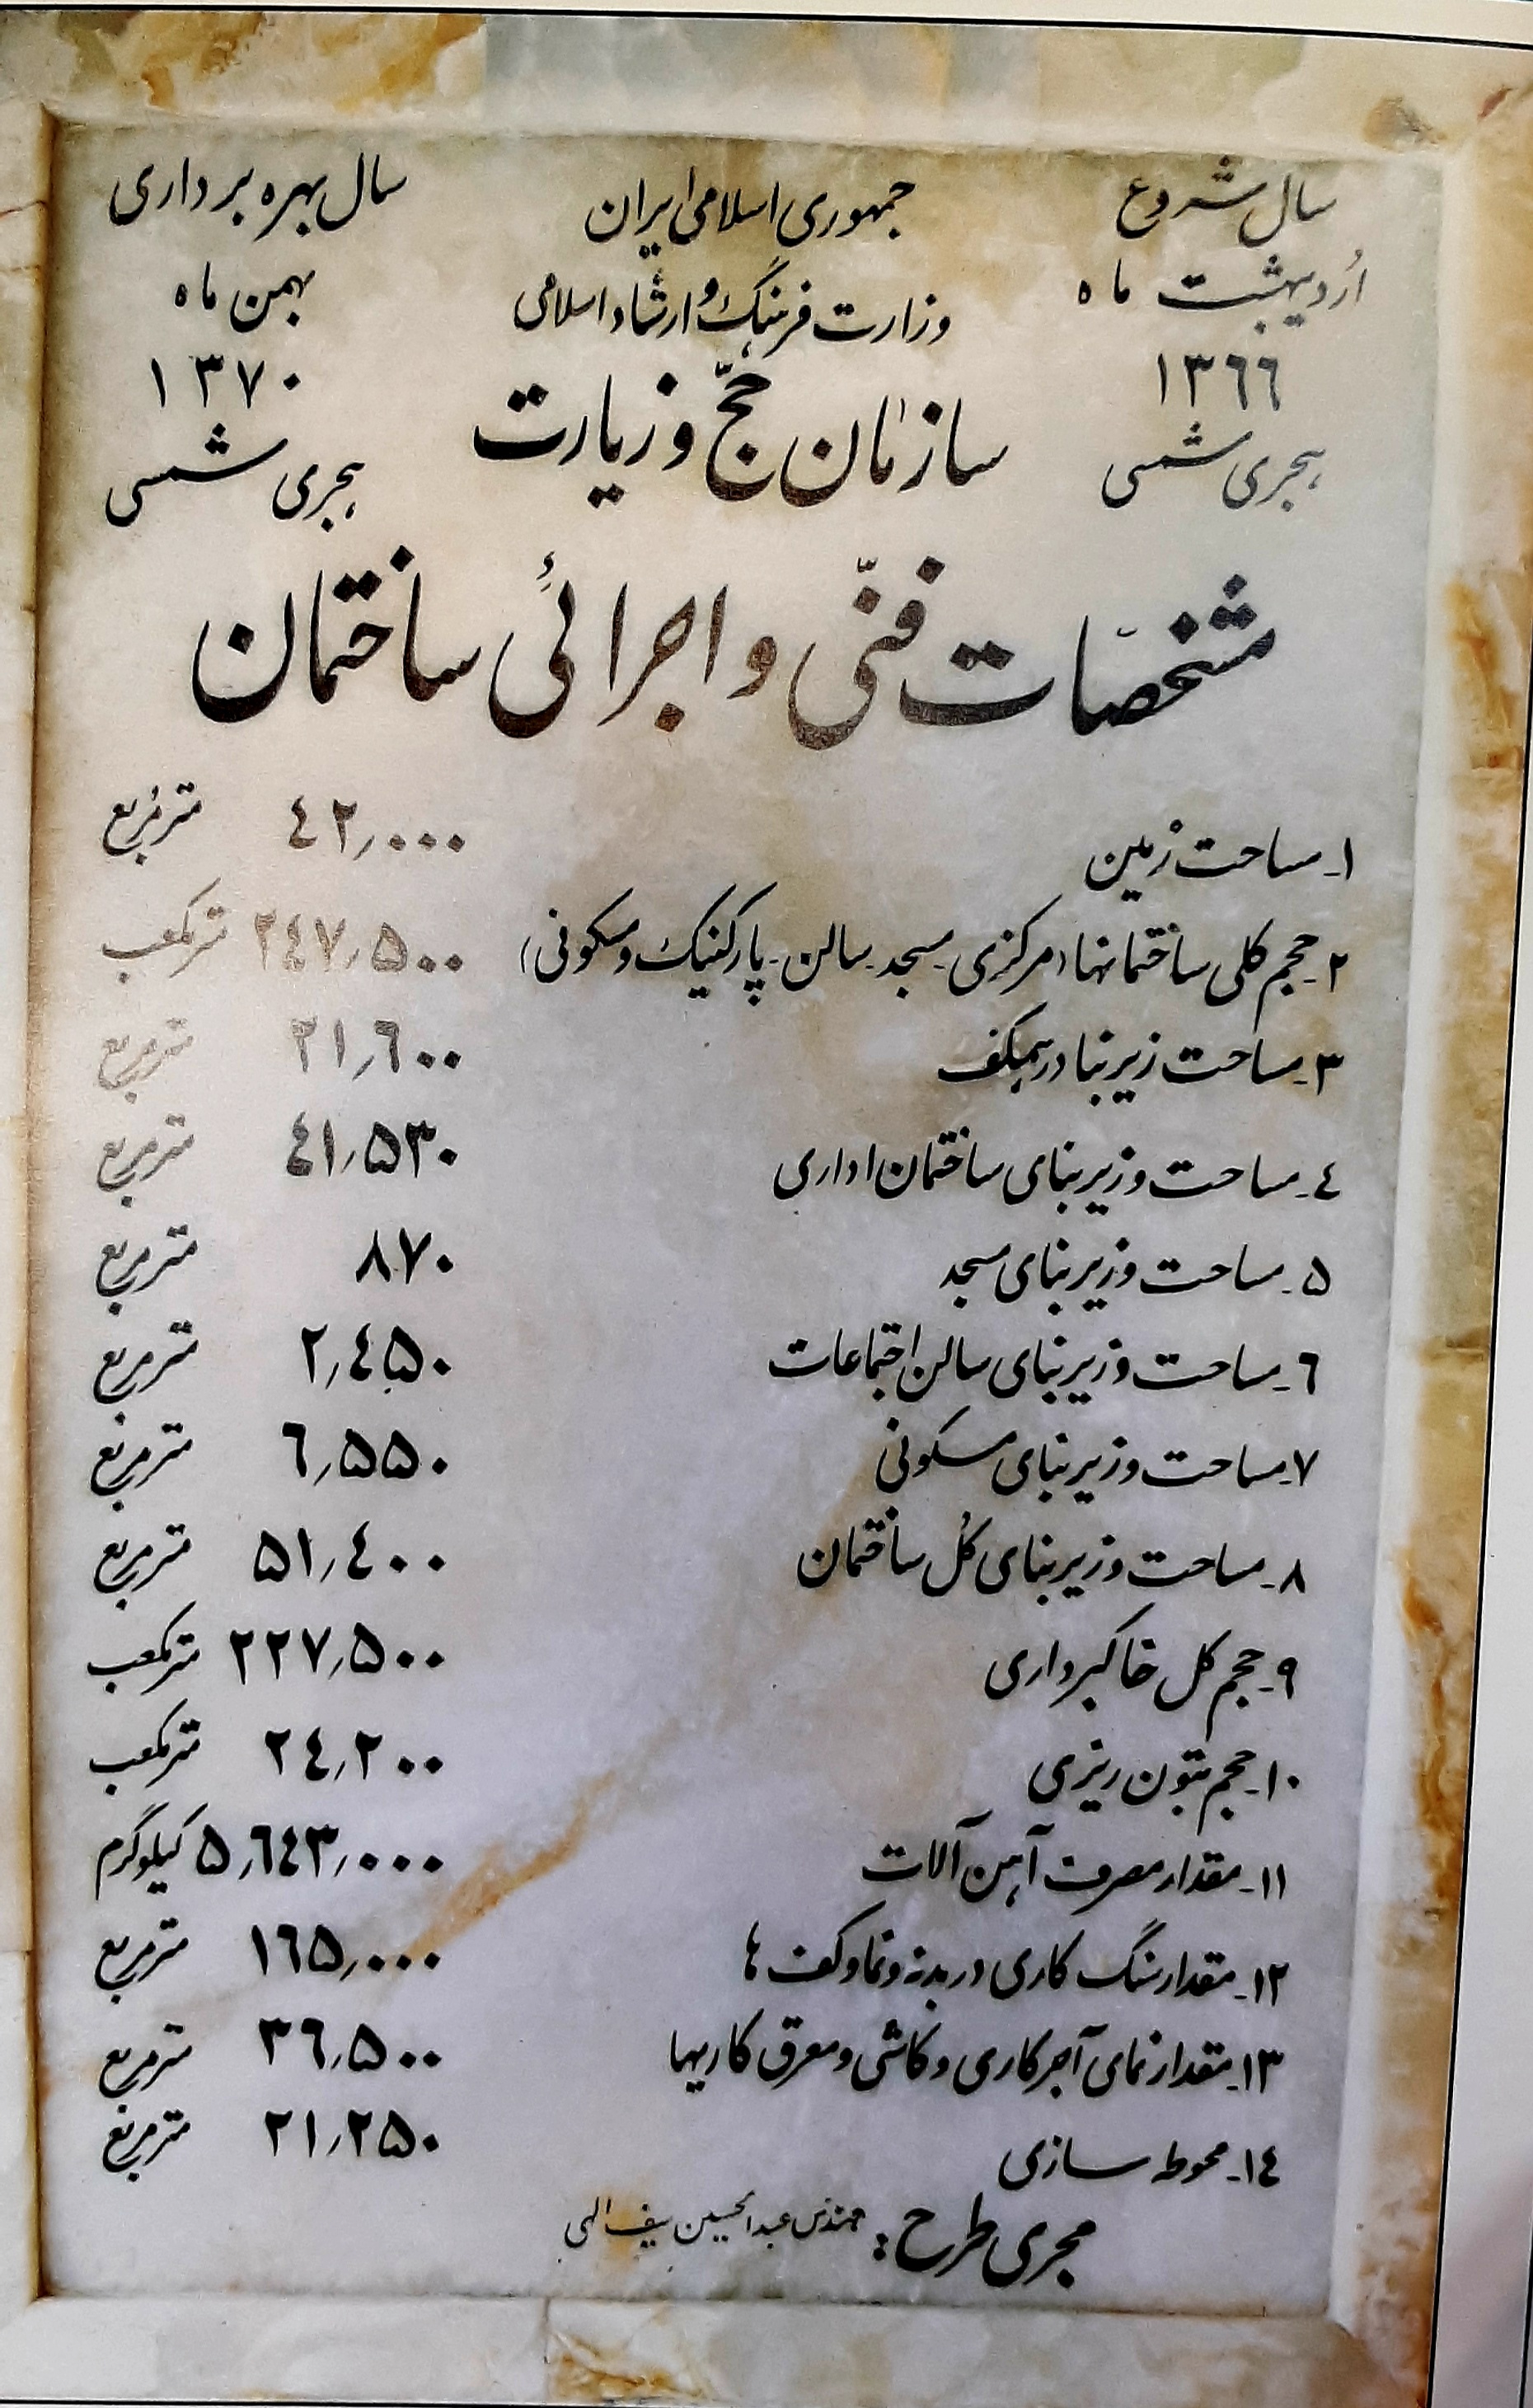 سال شروع
اُردیبهشت ماه
١٣٦٦
هجری شمسی
جمهوری اسلامی ایران
وزارت فرهنگ و ارشاد اسلامی
سازمان حجّ و زیارت
سال بهره برداری
بهمن ماه
١٣٧٠
هجری شمسی
مشخصّات فنّی و اجرائی ساختمان
١ـ مساحت زمین ٤٢٫٠٠٠ متر مُربع
٢ـ حجم کلی ساختمانها (مرکزی ـ مسجد ـ سالن ـ پارکینیک و مسکونی) ٢٤٧٫۵٠٠ متر مکعب
٣ـ مساحت زیربنا در همکف ٢١٫٦٠٠ متر مربع
٤ـ مساحت و زیربنای ساختمان اداری ٤١٫۵٣٠ متر مربع
۵ـ مساحت و زیربنای مسجد ٨٧٠ متر مربع
٦ـ مساحت و زیربنای سالن اجتماعات ٢٫٤۵٠ متر مربع
٧ـ مساحت و زیربنای مسکونی ٦٫۵۵٠ متر مربع
٨ـ مساحت و زیربنای کُل ساختمان ۵١٫٤٠٠ متر مربع
٩ـ حجم کل خاکبرداری ٢٢٧٫۵٠٠ متر مکعب
١٠ـ حجم بتون ریزی ٢٤٫٢٠٠ متر مکعب
١١ـ مقدار مصرف آهن آلات ۵٫٦٤٣٫٠٠٠ کیلوگرم
١٢ـ مقدار سنگ کاری در بدنه و نما و کف ها ١٦۵٫٠٠٠ متر مربع
١٣ـ مقدار نمای آجر کاری و کاشی و معرق کاریها ٣٦٫۵٠٠ متر مربع
١٤ـ محوطه سازی ٢١٫٢۵٠ متر مربع
مجری طرح : مهندس عبدالحسین سیف الهی